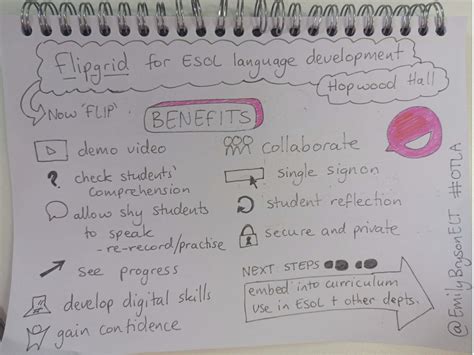 Flipgrid for ESOL language development
Hopwood Hall
Now 'FLIP'
BENEFITS
demo video
? check students'
comprehension
allow shy students
to speak
- re-record/practise
see progress
develop digital skills
gain confidence
collaborate
single signon
student reflection
secure and private
NEXT STEPS
embed into curriculum
use in ESOL + other depts.
@EmilyBrysonELT #OTLA